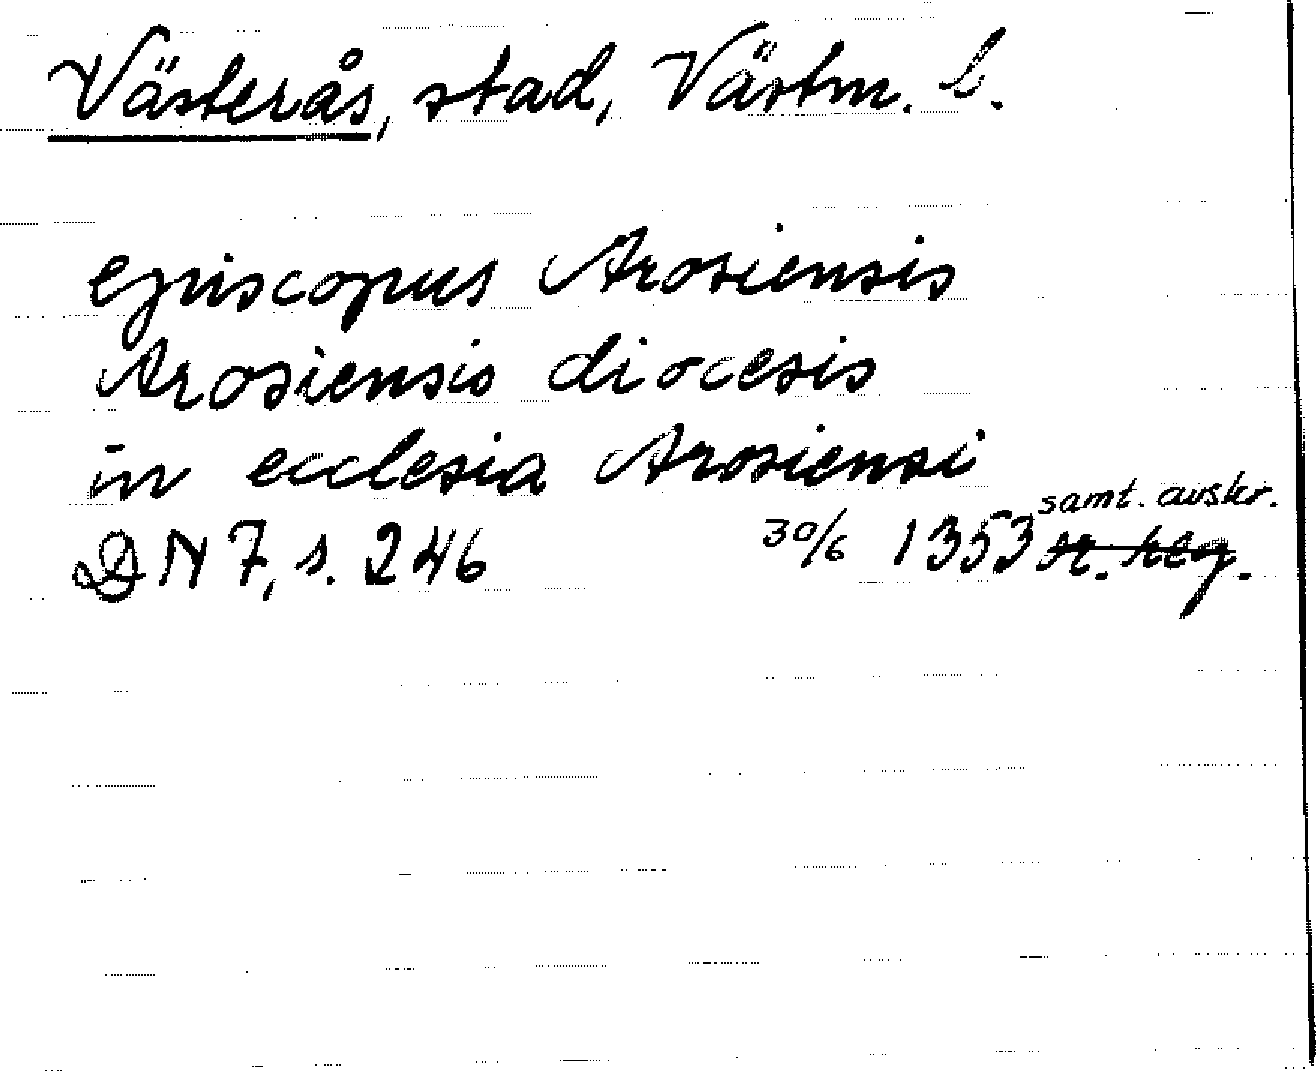 Västerås, stad, Västm. l.
episcopus Arosiensis
Arosiensis diocesis
in ecclesia Arosiensi
samt. avskr.
DN 7, s. 246 30/6 1353 or. reg.